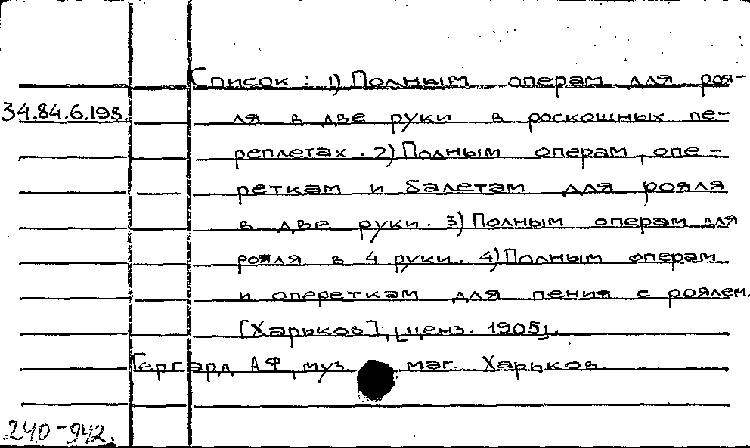 Список : 1) Полным операм для роя-
34.84.6.193.
ля в две руки в роскошных пе-
реплетах. 2) Полным операм, опе-
реткам и балетам для рояля
в две руки. 3) Полным операм для
рояля в 4 руки. 4) Полным операм
и опереткам для пения с роялем.
[Харьков], [ценз. 1905].
Гергард А.Ф., муз. маг. Харьков.
240-942.